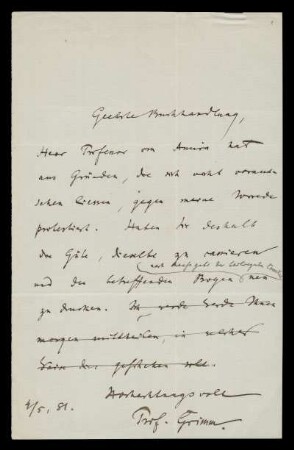 Geehrte Buchhandlung,
Herr Professor von Amira hat
aus Gründen, die sich wohl voraus-
sehen liessen, gegen meine Vorrede
protestiert. Haben Sie deshalb
die Güte, dieselbe zu cassieren
nach
und den betreffenden Bogen neu
zu drucken. Ich werde beide Ihnen
morgen mittheilen, in welcher
geschehen soll.
Hochachtungsvoll
4/5. 81.
Prof. Grimm.